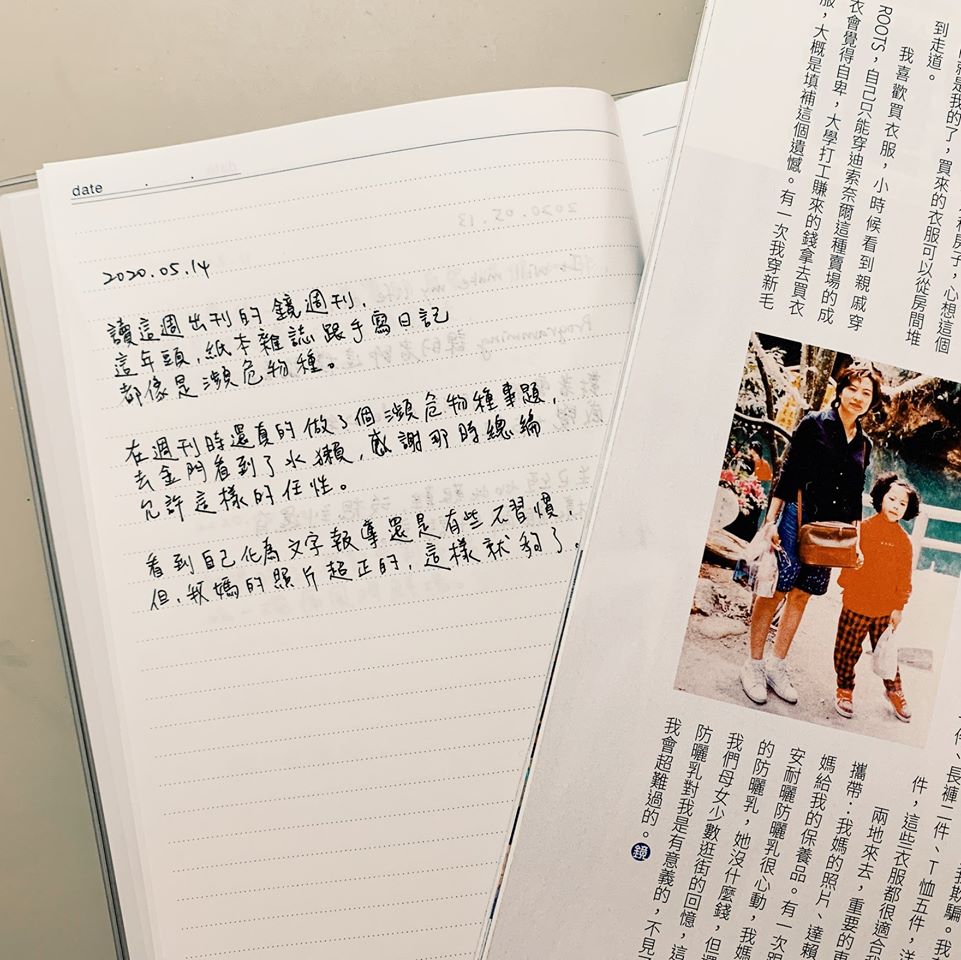 date
2020.05.14
讀這週出刊的鏡週刊，
這年頭，紙本雜誌跟手寫日記
都像是瀕危物種。
在週刊時還真的做了個瀕危物種專題，
去金門看到了水獺，感謝那時總編
允許這樣的任性。
看到自己化為文字報導還是有些不習慣，
但，我媽的照片超正的，這樣就夠了。
房子，心想這個
就是我的了，買來的衣服可以從房間堆
到走道。
我喜歡買衣服，小時候看到親戚穿
ROOTS，自己只能穿迪索奈爾這種賣場的成
衣會覺得自卑，大學打工賺來的錢拿去買衣
服，大概是填補這個遺憾。有一次我穿新毛
欺騙。我
件、長褲二件、T恤五件，洋
件，這些衣服都很適合我
兩地來去，重要的東
攜帶：我媽的照片、達賴
媽給我的保養品。有一次跟
安耐曬防曬乳很心動，我媽
的防曬乳，她沒什麼錢，但還
我們母女少數逛街的回憶，這
防曬乳對我是有意義的，不見了
我會超難過的。鏡